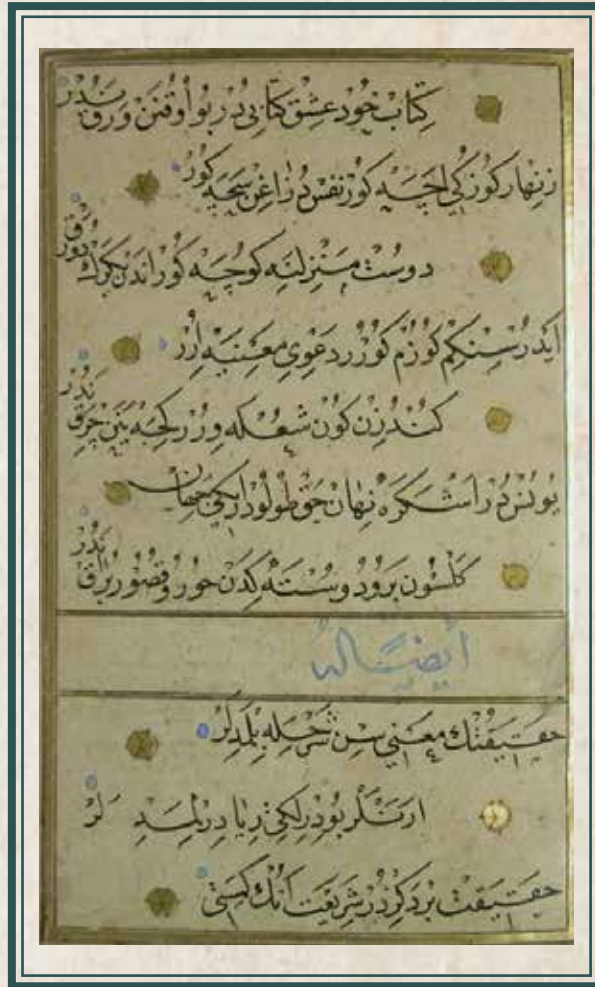 كِتَابْ خُودْ عِشْقْ كِتَابِى دُرْ بُو اُوقُنَنْ وَرَقْ نَدُرْ
زِنْهَارْ كُوزْكِى اَچَه كُورْ نَفْسْ دُزَاغِنْ سَچَه كُورْ
دُوسْتْ مَنْزِلِنَه كُوچَه كُورْ اَنْدَنْ
اَيْدُرْسِنْكِمْ كُوزُمْ كُورُرْ دَعْوِىِ مَعْنِيَه اِرُرْ
كُنْدُزِنْ كُونْ شُعْلَه وِرُرْ كِجَه يَنَنْ چِرَقْ نَدُرْ
يُونُسْ دُرْ اَشْكَرَه نِهَانْ حَقْ طُولُودُرْ اِيكِى جِهَانْ
كَلْسُونْ بَرُو دُوسْتَه كِدَنْ حُورُ و قُصُورْ بُرَاقْ نَدُرْ
اَيْضًا لَهُ
حَقِيقَتُنْكْ مَعْنِى سِنْ شَرْحِلَه بِلْمَدِلَرْ
اَرَنْلَرْ بُو دِرْلِكِى رِيَا دِرِلْمَدِلَرْ
حَقِيقَتْ بِرْ دَكِزْدُرْ شَرِيعَتْ اَنُكْ كَمِسِى